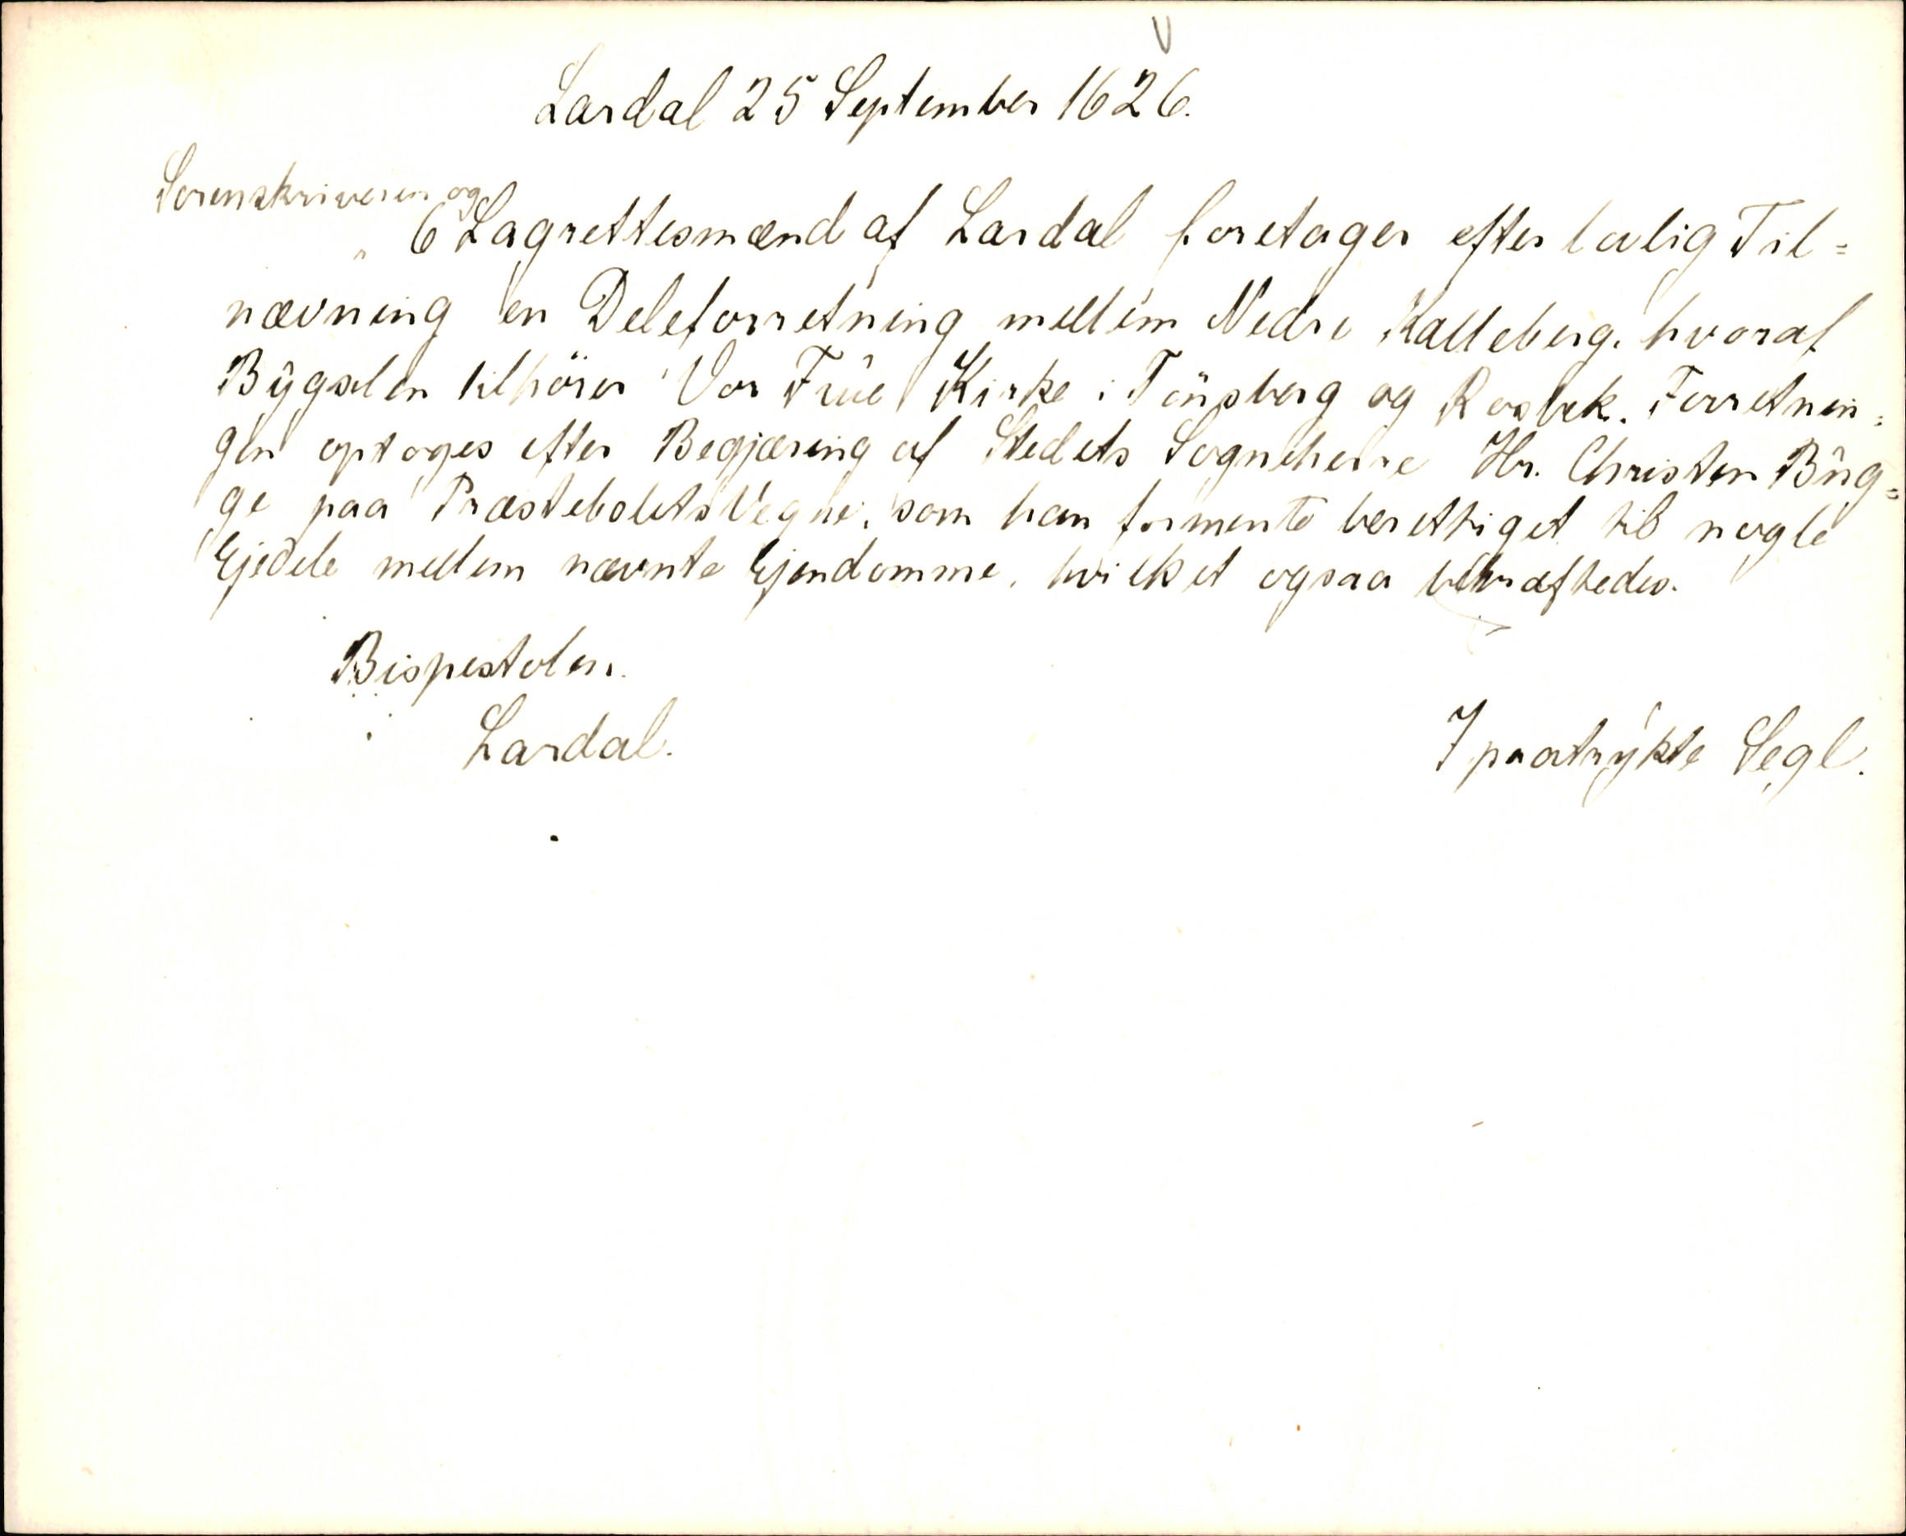 Lardal 25 September 1626.
Sorenskriveren og
6 Lagrettesmænd af Lardal foretager efter lovlig Til=
nævning en Deleforretning mellem Nedre Kalleberg, hvoraf
Bygselen tilhörer Vor Frue Kirke i Tönsberg og Rosbek. Forretnin=
gen optoges efter Begjæring af Stedets Sogneherre Hr. Christen Bug=
ge paa Præstebolets Vegne, som han formente berettiget til nogle
Ejedele mellem nævnte Ejendomme, hvilket ogsaa bekræftedes.
Bispestolen.
Lardal.
7 paatrykte Segl.